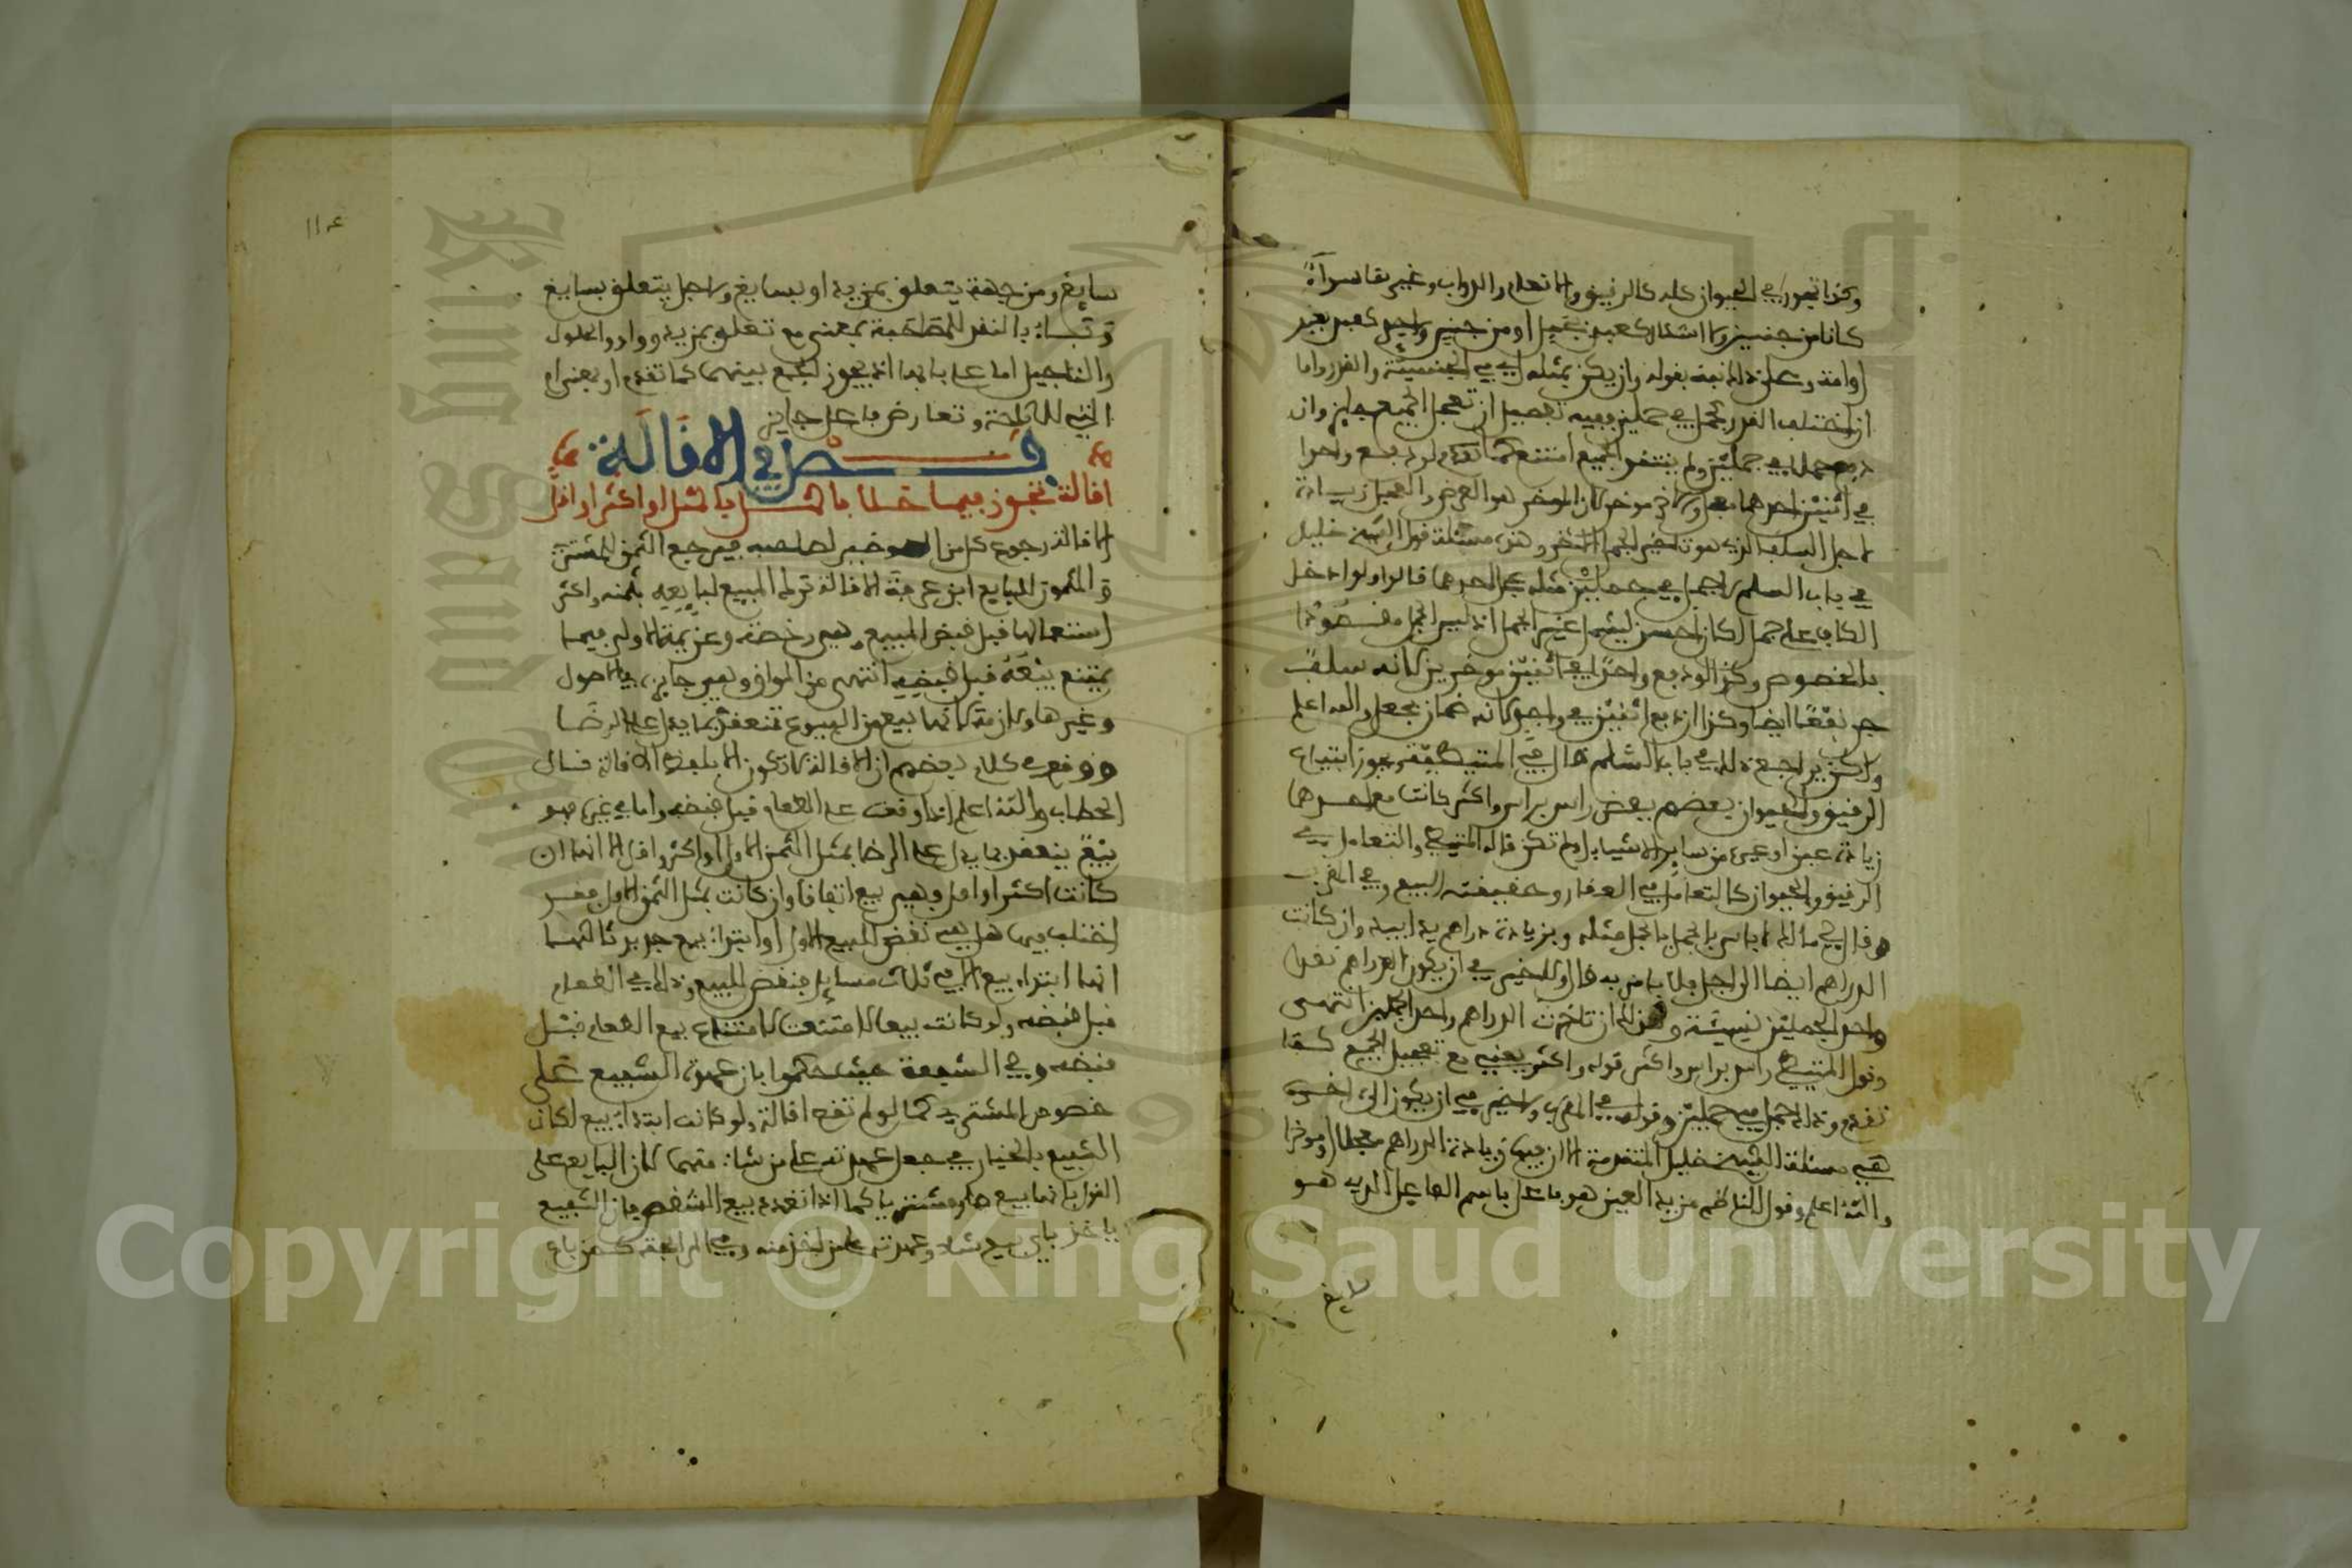 وكذا تجوز في الحيوان كله كالرقيق والانعام والدواب وغير بقا سواء
كانا من جنسين ولا اشكال كعبد بجمل او من جنس واحد كعبد بعبد
او امة وعلى ذلك نبه بقوله وان يكن بمثله اي في الجنسية والقدر واما
ان اختلف القدر كجمل في جملين ففيه تفصيل ان تعجل الجميع جاز وان
دفع جملا في جملين ولم ينتقد الجميع امتنع كما تقدم لو دفع واحدا
في اثنين احدهما معجل والاخر موخر لان الموخر هو العوض والمعجل زيادة
لاجل السلف الذي هو تاخير الجمل الاخر وهذه مسئلة قول الشيخ خليل
في باب السلم كجمل في جملين مثله عجل احدهما قالوا ولو ادخل
الكاف على جمل لكان احسن ليشمل غير الجمل اذ ليس الجمل مقصودا
بالخصوص وكذا لو دفع واحدا في اثنين موخرين لانه سلف
جر نفعا ايضا وكذا ان دفع اثنين في واحد لانه ضمان بجعل والله اعلم
ولاكن يراجع ذلك في باب السلم قال في المتيطية ويجوز ابتياع
الرقيق والحيوان بعضهم ببعض راس براس واكثر كانت مع احدهما
زيادة عين او غيره من ساير الاشياء او لم تكن قاله المتيطي والتعامل في
الرقيق والحيوان كالتعامل في العقار وحقيقته البيع وفي المقرب
وقال مالك لا باس بالجمل بالجمل مثله وبزيادة دراهم يدا بيد وان كانت
الدراهم ايضا الى اجل فلا باس به قال ولا خير في ان يكون الدراهم نقدا
واحد الجملين نسيئة وكذلك ان تاخرت الدراهم واحد الجملين انتهى
وقول المتيطي راس براس واكثر قوله واكثر يعني مع تعجيل الجميع كما
تقدم وذلك كجمل في جملين وقوله في المقرب ولا خير في ان يكون الى اخره
هي مسئلة الشيخ خليل المتقدمة الا ان فيها زيادة الدراهم معجلا او موخرا
والله اعلم وقول الناظم مزيد العين هو فاعل باسم الفاعل الذي هو
سايغ
١١٤
سايغ ومن جهة يتعلق بمزيد او بسايغ ولاجل يتعلق بسايغ
وباء بالنقد للمصاحبة بمعنى مع تتعلق بمزيد وواو والحلول
والتاجيل اما على بابها اذ يجوز الجمع بينهما كما تقدم او بمعنى او
التي للاباحة وتعارض فاعل جايز
فصل في الاقالة
اقالة تجوز فيما حللا بالمثل او اكثر او اقلا
الاقالة رجوع كل من العوضين لصاحبه فيرجع الثمن للمشتري
والمثمون للبايع ابن عرفة الاقالة ترك المبيع لبايعه بثمنه واكثر
استعمالها قبل قبض المبيع وهي رخصة وعزيمة الاولى فيما
يمتنع بيعه قبل قبضه انتهى من المواق وهي جايزة في الاصول
وغيرها ولازمة لانها بيع من البيوع تنعقد بما يدل على الرضا
ووقع في كلام بعضهم ان الاقالة لا تكون الا بلفظ الاقالة قال
الحطاب والله اعلم اذا وقعت على الطعام قبل قبضه واما في غيره فهو
بيع ينعقد بما يدل على الرضا بمثل الثمن الاول او اكثر او اقل الا انها ان
كانت اكثر او اقل فهي بيع اتفاقا وان كانت بمثل الثمن الاول فقد
اختلف فيها هل هي نقض للبيع الاول او ابتداء بيع جديد ثالثها
انها ابتداء بيع الا في ثلاث مسايل فنقض للبيع وذلك في الطعام
قبل قبضه ولو كانت بيعا لامتنعت لامتناع بيع الطعام قبل
قبضه وفي الشفعة حيث حكموا بان عهدة الشفيع على
خصوص المشتري كما لو لم تقع اقالة ولو كانت ابتداء بيع لكان
الشفيع بالخيار في جعل عهدته على من شاء منهما لان البايع على
القول بانها بيع صار مشتريا كما اذا تعدد بيع الشقص فان الشفيع
ياخذ باي بيع شاء وعهدته على من اخذ منه وفي المرابحة كمن باع
Copyright © King Saud University